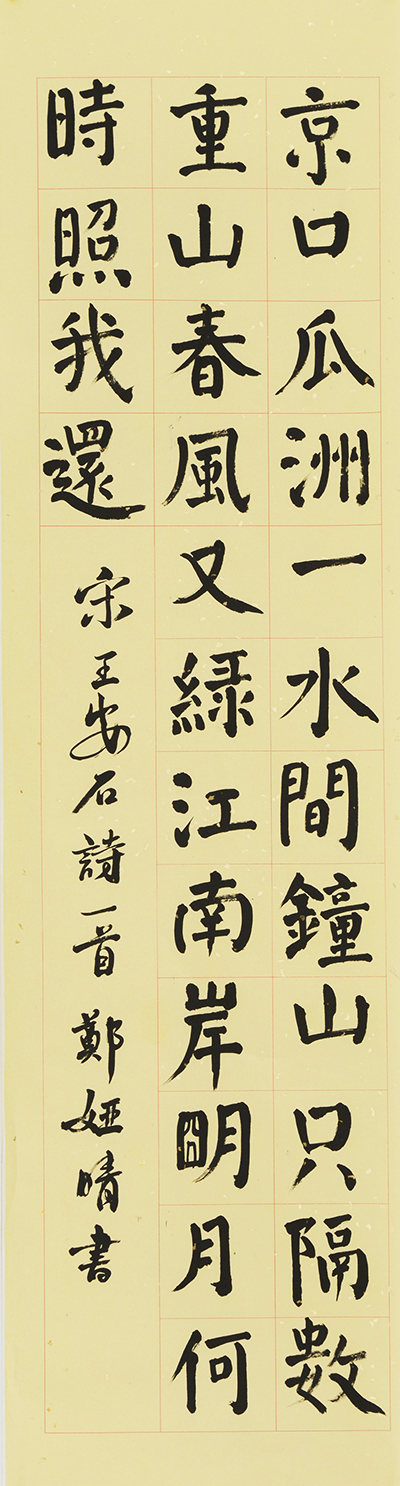 京口瓜洲一水間鐘山只隔數
重山春風又綠江南岸明月何
時照我還
宋王安石詩一首 鄭婭晴書